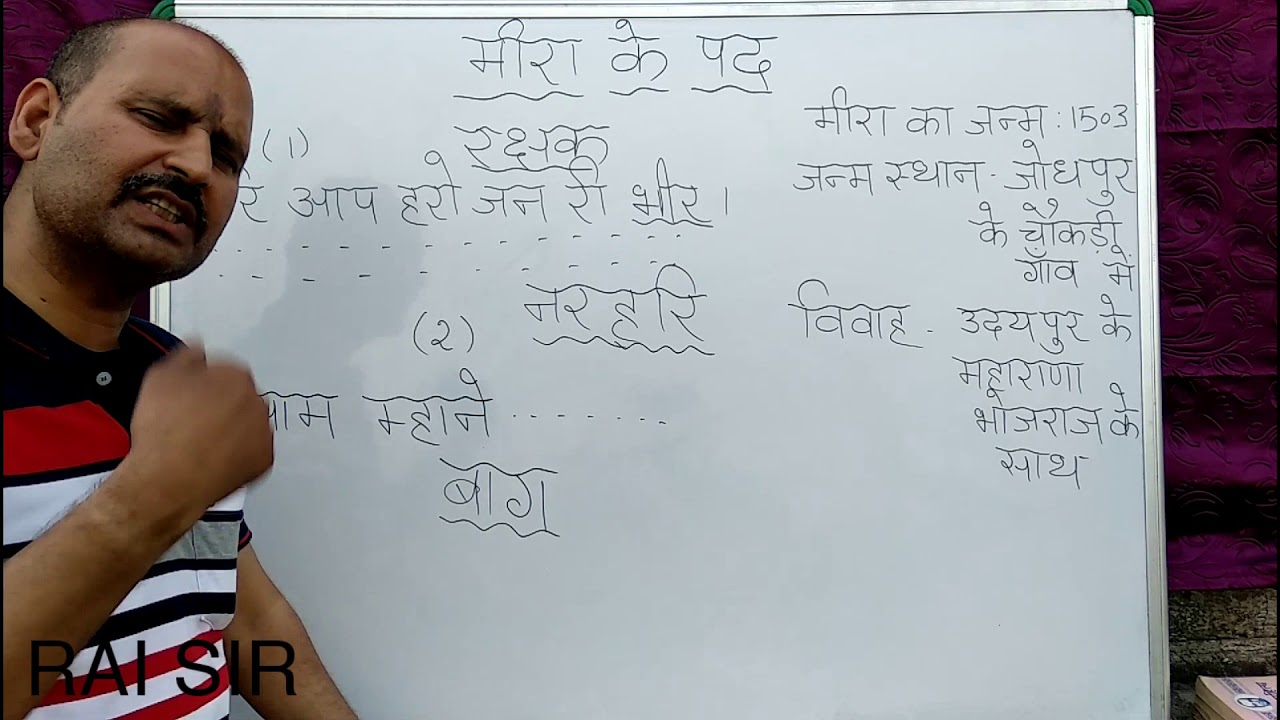 मीरा के पद
(1)
रक्षक
रि आप हरो जन री भीर ।
नरहरि
(2)
म्हाने
बाग
मीरा का जन्म : 1503
जन्म स्थान - जोधपुर
के चौकड़ी
गाँव में
विवाह - उदयपुर के
महाराणा
भोजराज के
साथ
RAI SIR